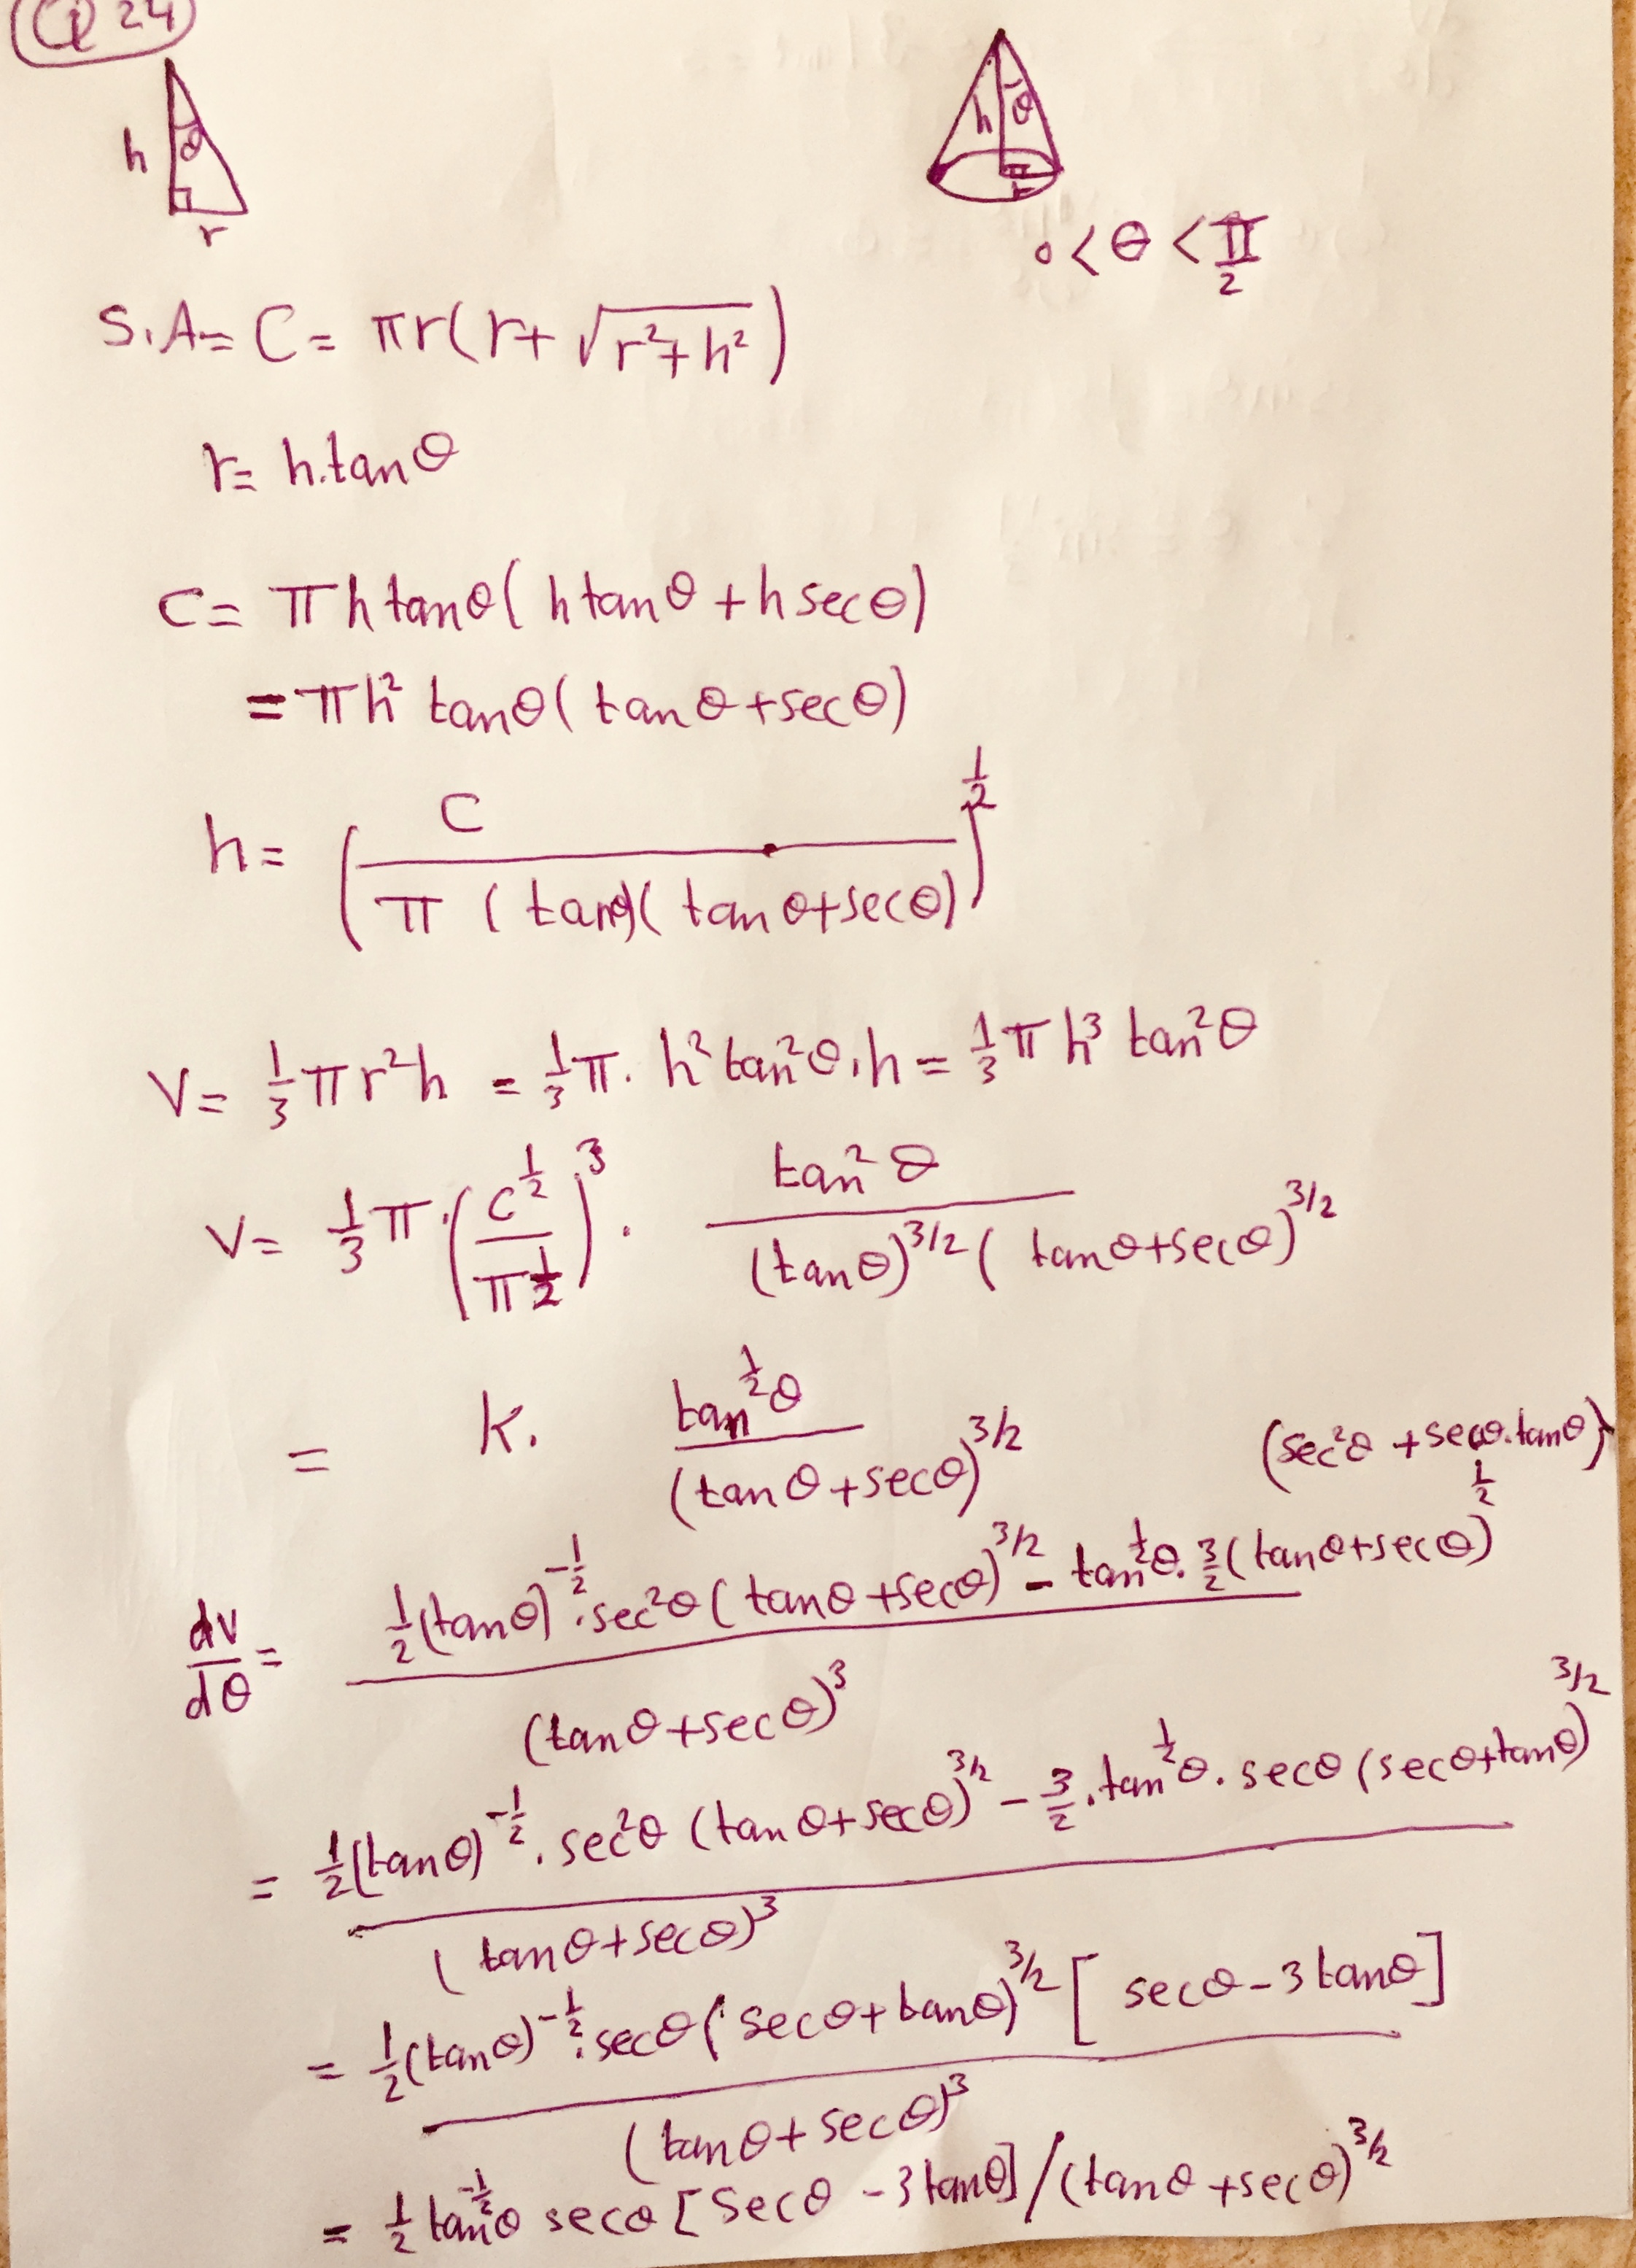 Q 24
h θ r
h θ r
0 < θ < π/2
S.A = C = πr(r + √(r² + h²))
r = h.tanθ
C = πh tanθ(h tanθ + h secθ)
= πh² tanθ(tanθ + secθ)
h = (C / π(tanθ)(tanθ + secθ))^(1/2)
V = 1/3 πr²h = 1/3 π. h² tan²θ.h = 1/3 πh³ tan²θ
V = 1/3 π.(C^(1/2) / π^(1/2))³ . tan²θ / (tanθ)^(3/2) (tanθ + secθ)^(3/2)
= k. tan^(1/2)θ / (tanθ + secθ)^(3/2)
(sec²θ + secθ.tanθ)
dv/dθ = 1/2(tanθ)^(-1/2).sec²θ(tanθ + secθ)^(3/2) - tan^(1/2)θ. 3/2(tanθ + secθ)^(1/2) / (tanθ + secθ)³
= 1/2(tanθ)^(-1/2). sec²θ (tanθ + secθ)^(3/2) - 3/2.tan^(1/2)θ. secθ (secθ + tanθ)^(3/2) / (tanθ + secθ)³
= 1/2(tanθ)^(-1/2).secθ(secθ + tanθ)^(3/2) [secθ - 3tanθ] / (tanθ + secθ)³
= 1/2 tan^(-1/2)θ secθ [secθ - 3tanθ] / (tanθ + secθ)^(3/2)